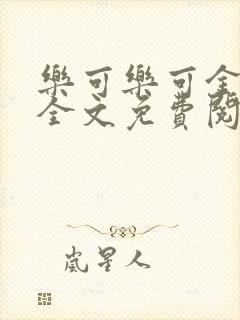 樂可樂可全
全文免費閱
嵐星人